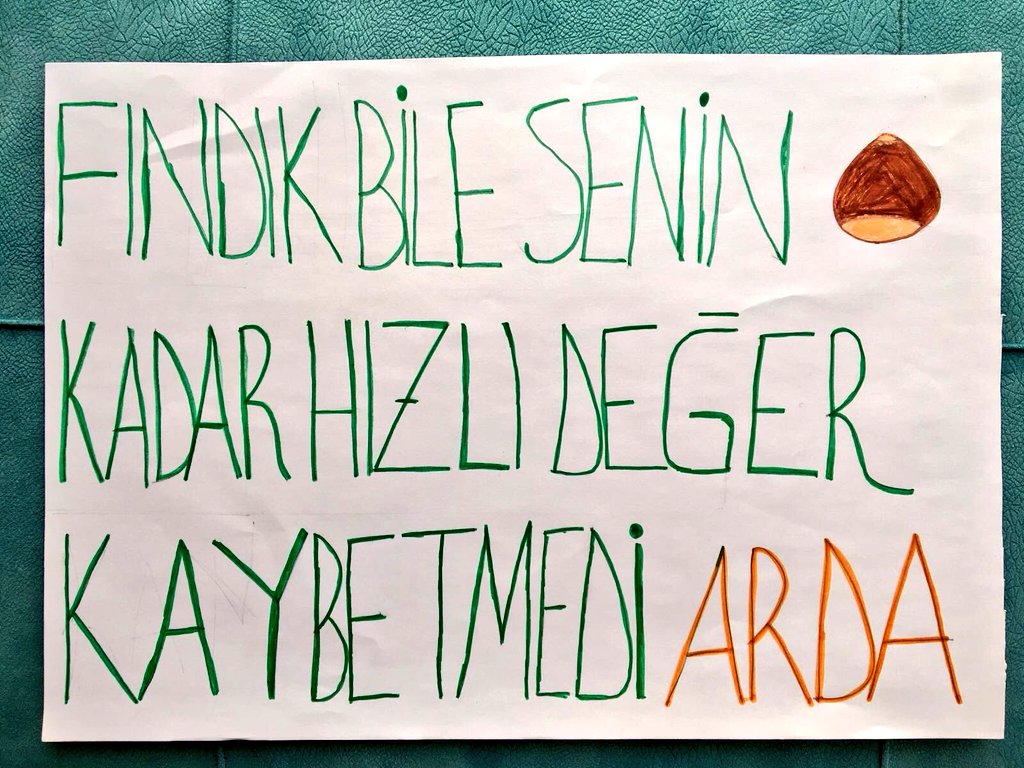 FINDIK BİLE SENİN
KADAR HIZLI DEĞER
KAYBETMEDİ ARDA